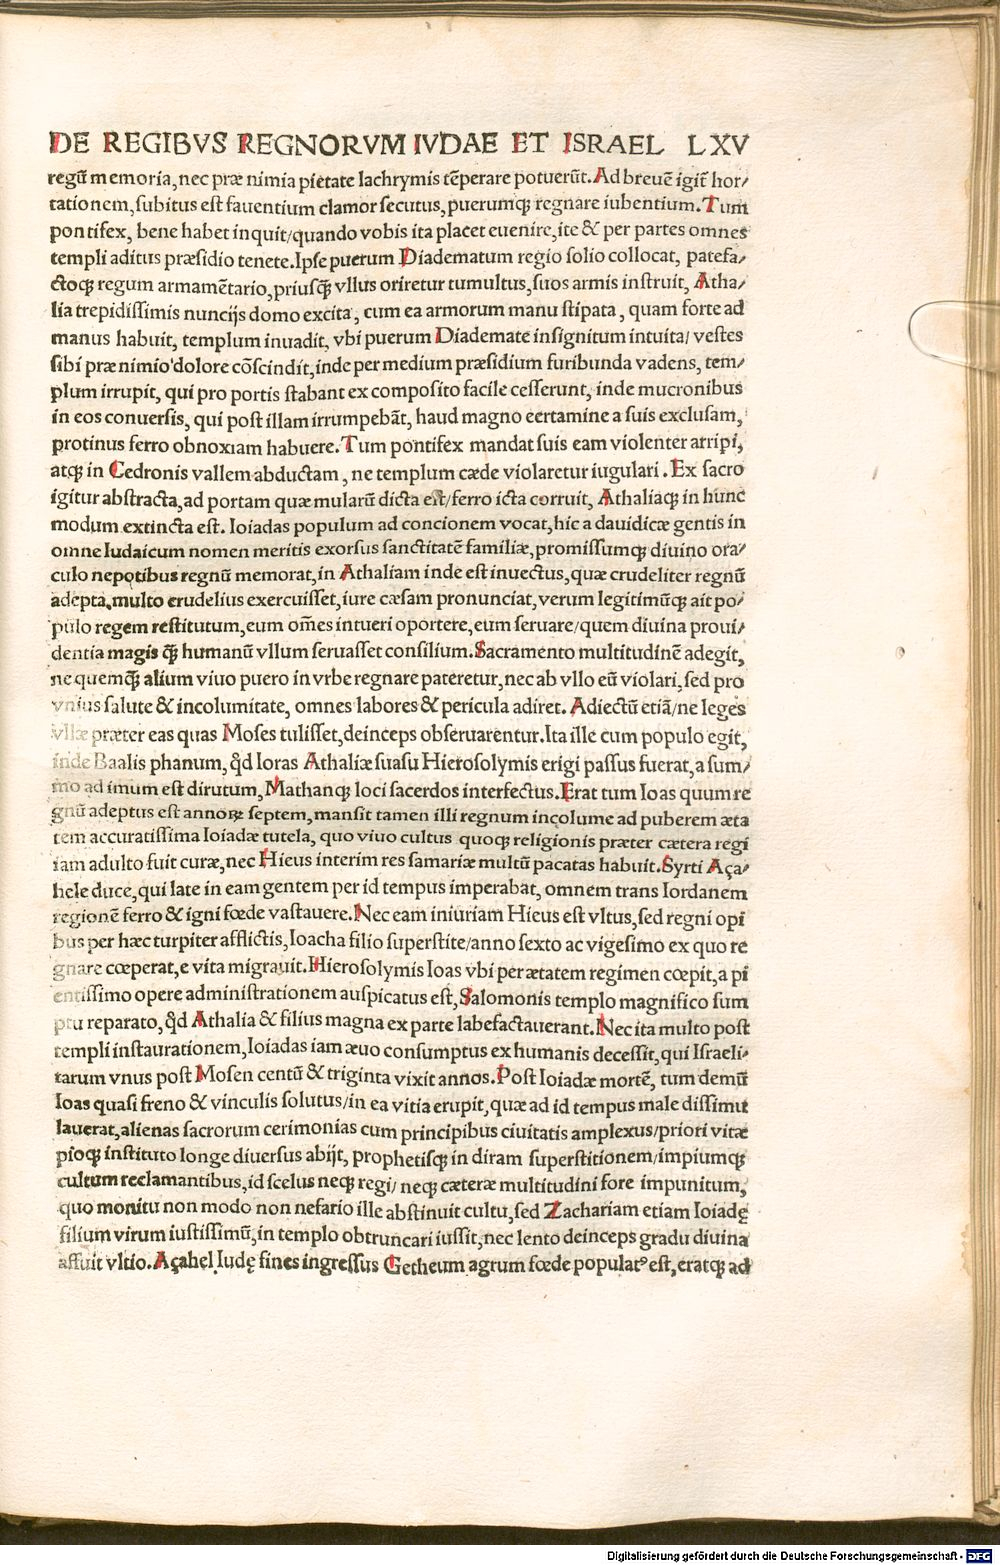 DE REGIBVS REGNORVM IVDAE ET ISRAEL LXV
regū memoria, nec præ nimia pietate lachrymis tēperare potuerūt. Ad breuē igit̄ hor/
tationem, subitus est fauentium clamor secutus, puerumqꝫ regnare iubentium. Tum
pontifex, bene habet inquit/quando vobis ita placet euenire, ite & per partes omnes
templi aditus præsidio tenete. Ipse puerum Diadematum regio solio collocat, patefa/
ctoqꝫ regum armamētario, priusq̄ꝫ vllus oriretur tumultus, suos armis instruit, Atha/
lia trepidissimis nuncijs domo excita, cum ea armorum manu stipata, quam forte ad
manus habuit, templum inuadit, vbi puerum Diademate insignitum intuita/ vestes
sibi præ nimio dolore cōscindit, inde per medium præsidium furibunda vadens, tem/
plum irrupit, qui pro portis stabant ex composito facile cesserunt, inde mucronibus
in eos conuersis, qui post illam irrumpebāt, haud magno certamine a suis exclusam,
protinus ferro obnoxiam habuere. Tum pontifex mandat suis eam violenter arripi,
atqꝫ in Cedronis vallem abductam, ne templum cæde violaretur iugulari. Ex sacro
igitur abstracta, ad portam quæ mularū dicta est/ferro icta corruit, Athaliaqꝫ in hunc
modum extincta est. Ioiadas populum ad concionem vocat, hic a dauidicæ gentis in
omne Iudaicum nomen meritis exorsus sanctitatē familiæ, promissumqꝫ diuino ora/
culo nepotibus regnū memorat, in Athaliam inde est inuectus, quæ crudeliter regnū
adepta, multo crudelius exercuisset, iure cæsam pronunciat, verum legitimūqꝫ ait po/
pulo regem restitutum, eum om̄es intueri oportere, eum seruare/quem diuina proui/
dentia magis q̄ꝫ humanū vllum seruasset consilium. Sacramento multitudinē adegit,
ne quemq̄ꝫ alium viuo puero in vrbe regnare pateretur, nec ab vllo eū violari, sed pro
vnius salute & incolumitate, omnes labores & pericula adiret. Adiectū etiā/ne leges
vllæ præter eas quas Moses tulisset, deinceps obseruarentur. Ita ille cum populo egit,
inde Baalis phanum, q̄d Ioras Athaliæ suasu Hierosolymis erigi passus fuerat, a sum/
mo ad imum est dirutum, Mathanqꝫ loci sacerdos interfectus. Erat tum Ioas quum re
gnū adeptus est annoꝝ septem, mansit tamen illi regnum incolume ad puberem æta
tem accuratissima Ioiadæ tutela, quo viuo cultus quoqꝫ religionis præter cætera regi
iam adulto fuit curæ, nec Hieus interim res samariæ multū pacatas habuit. Syrti Aça/
hele duce, qui late in eam gentem per id tempus imperabat, omnem trans Iordanem
regionē ferro & igni fœde vastauere. Nec eam iniuriam Hieus est vltus, sed regni opi
bus per hæc turpiter afflictis, Ioacha filio superstite/anno sexto ac vigesimo ex quo re
gnare cœperat, e vita migrauit. Hierosolymis Ioas vbi per ætatem regimen cœpit, a pi
entissimo opere administrationem auspicatus est, Salomonis templo magnifico sum
ptu reparato, q̄d Athalia & filius magna ex parte labefactauerant. Nec ita multo post
templi instaurationem, Ioiadas iam æuo consumptus ex humanis decessit, qui Israeli/
tarum vnus post Mosen centū & triginta vixit annos. Post Ioiadæ mortē, tum demū
Ioas quasi freno & vinculis solutus/in ea vitia erupit, quæ ad id tempus male dissimu
lauerat, alienas sacrorum cerimonias cum principibus ciuitatis amplexus/priori vitæ
pioqꝫ instituto longe diuersus abijt, prophetisqꝫ in diram superstitionem/impiumqꝫ
cultum reclamantibus, id scelus neqꝫ regi/ neqꝫ cæteræ multitudini fore impunitum,
quo monitu non modo non nefario ille abstinuit cultu, sed Zachariam etiam Ioiadę
filium virum iustissimū, in templo obtruncari iussit, nec lento deinceps gradu diuina
affuit vltio. Açahel Iudę fines ingressus Getheum agrum fœde populatꝰ est, eratqꝫ ad
Digitalisierung gefördert durch die Deutsche Forschungsgemeinschaft - DFG